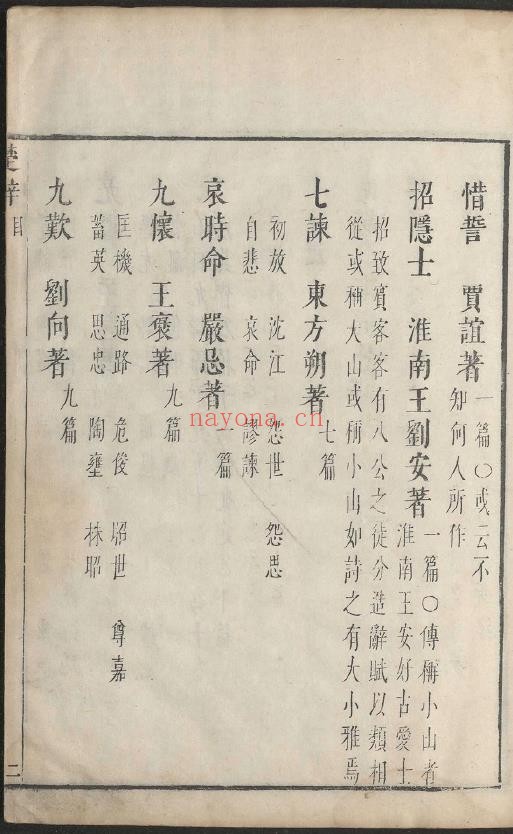 惜誓 賈誼著 一篇○或云不
知何人所作
招隱士 淮南王劉安著 一篇○傳稱小山者
淮南王安好古愛士
招致賓客客有八公之徒分造辭賦以類相
從或稱大山或稱小山如詩之有大小雅焉
七諫 東方朔著 七篇
初放 沈江 怨世 怨思
自悲 哀命 謬諫
哀時命 嚴忌著 一篇
九懷 王褒著 九篇
匡機 通路 危俊 昭世 尊嘉
蓄英 思忠 陶壅 株昭
九歎 劉向著 九篇
楚辭 目
二
nayona.cn